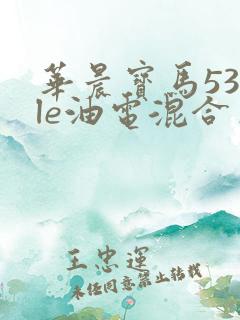 華晨寶馬53
le油電混合
王忠運
未经同意禁止转载